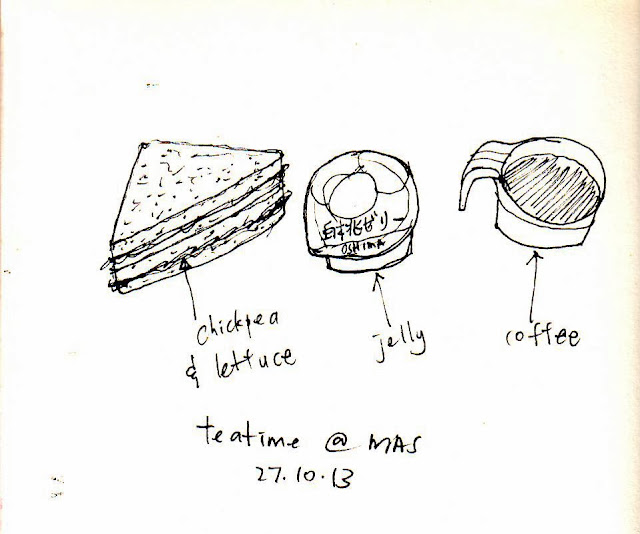 白桃ゼリー
OSHIMA
chickpea
& lettuce
jelly
coffee
teatime @ MAS
27.10.13